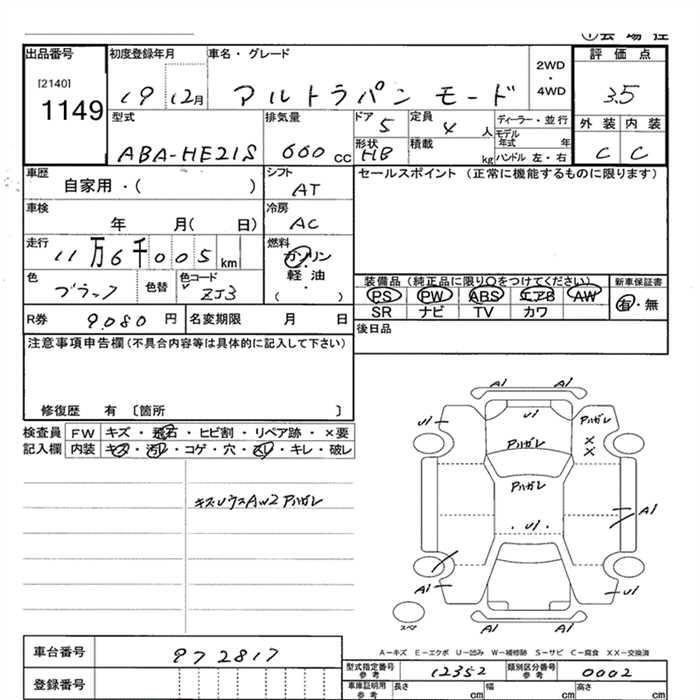 出品番号 初度登録年月 車名・グレード 評価点
[2140]
1149
19 12月 アルトラパン モード 2WD・4WD 3.5
型式 排気量 ドア 5 定員 4 人 ディーラー・並行 外装 内装
ABA-HE21S 660 cc 形状 HB 積載 kg モデル年式 年 ハンドル 左・右 C C
車歴 シフト セールスポイント (正常に機能するものに限ります)
自家用・( ) AT
車検 冷房
年 月( 日) AC
走行 燃料
11万6千005 km ガソリン
軽油
・
( )
色 色替 色コード 装備品 (純正品に限り○をつけてください) 新車保証書
ブラック ZJ3 PS PW ABS エアB AW 有・無
SR ナビ TV カワ
R券 9.080 円 名変期限 月 日 後日品
注意事項申告欄(不具合内容等は具体的に記入して下さい)
修復歴 有 〔箇所 〕
検査員 FW キズ・飛石・ヒビ割・リペア跡・×要
記入欄 内装 キズ・汚レ・コゲ・穴・スレ・キレ・破レ
キズUウスAW2アハガレ
A1 A1
U1 U1 Pハガレ
Pハガレ × ×
Pハガレ
A1
・U1・
A1 U1
A1 A1
スペア
A-キズ E-エクボ U-凹み W-補修跡 S-サビ C-腐食 XX-交換済
車台番号 972817 型式指定番号 参考 12352 類別区分番号 参考 0002
登録番号 車庫証明用 参考 長さ cm 幅 cm 高さ cm